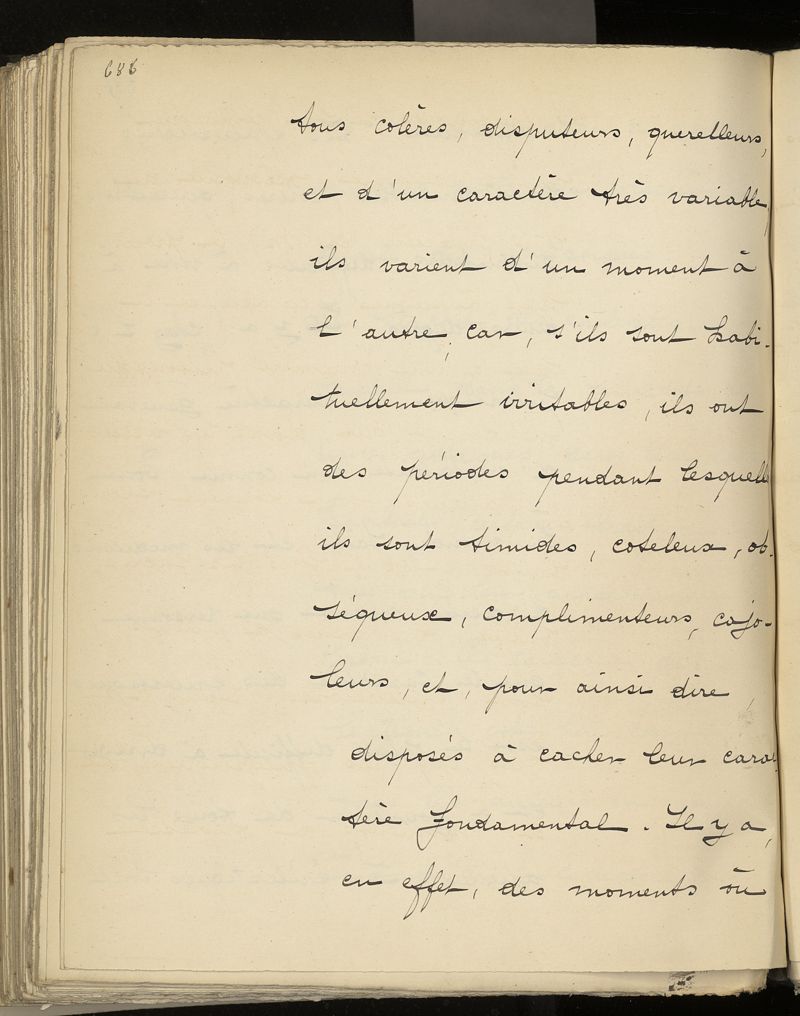 686
tous colères, disputeurs, querelleurs,
et d'un caractère très variable,
ils varient d'un moment à
l'autre, car, s'ils sont habi-
tuellement irritables, ils ont
des périodes pendant lesquell
ils sont timides, coteleux, ob-
séqueux, complimenteurs, cajo-
leurs, et, pour ainsi dire,
disposés à cacher leur carac
tère fondamental. Il y a,
en effet, des moments où